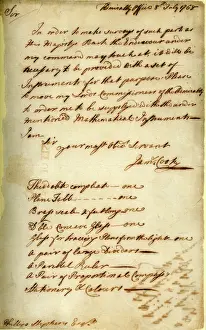 Sir
Admiralty Office 8 July 1768
In order to make surveys of such parts as
His Majestys Bark the Endeavour under
my command may touch at it will be
necessary to be provided with a set of
Instruments for that purpose. Please
to move my Lords Commissioners of the Admiralty
to order me to be supplyed with the under
mentioned Mathematical Instruments
I am
Sir
Your most Obt Servant
Jams Cook
Theodolite compleat — one
Plane Table — one
Brass Scale 2 feet long one
Glass for tracing Plans from the light one
a pair of large Dividers —
a Parallel Ruler —
a Pair of Proportional Compass
Stationery & Colours —
Phillip Stephens Esqr